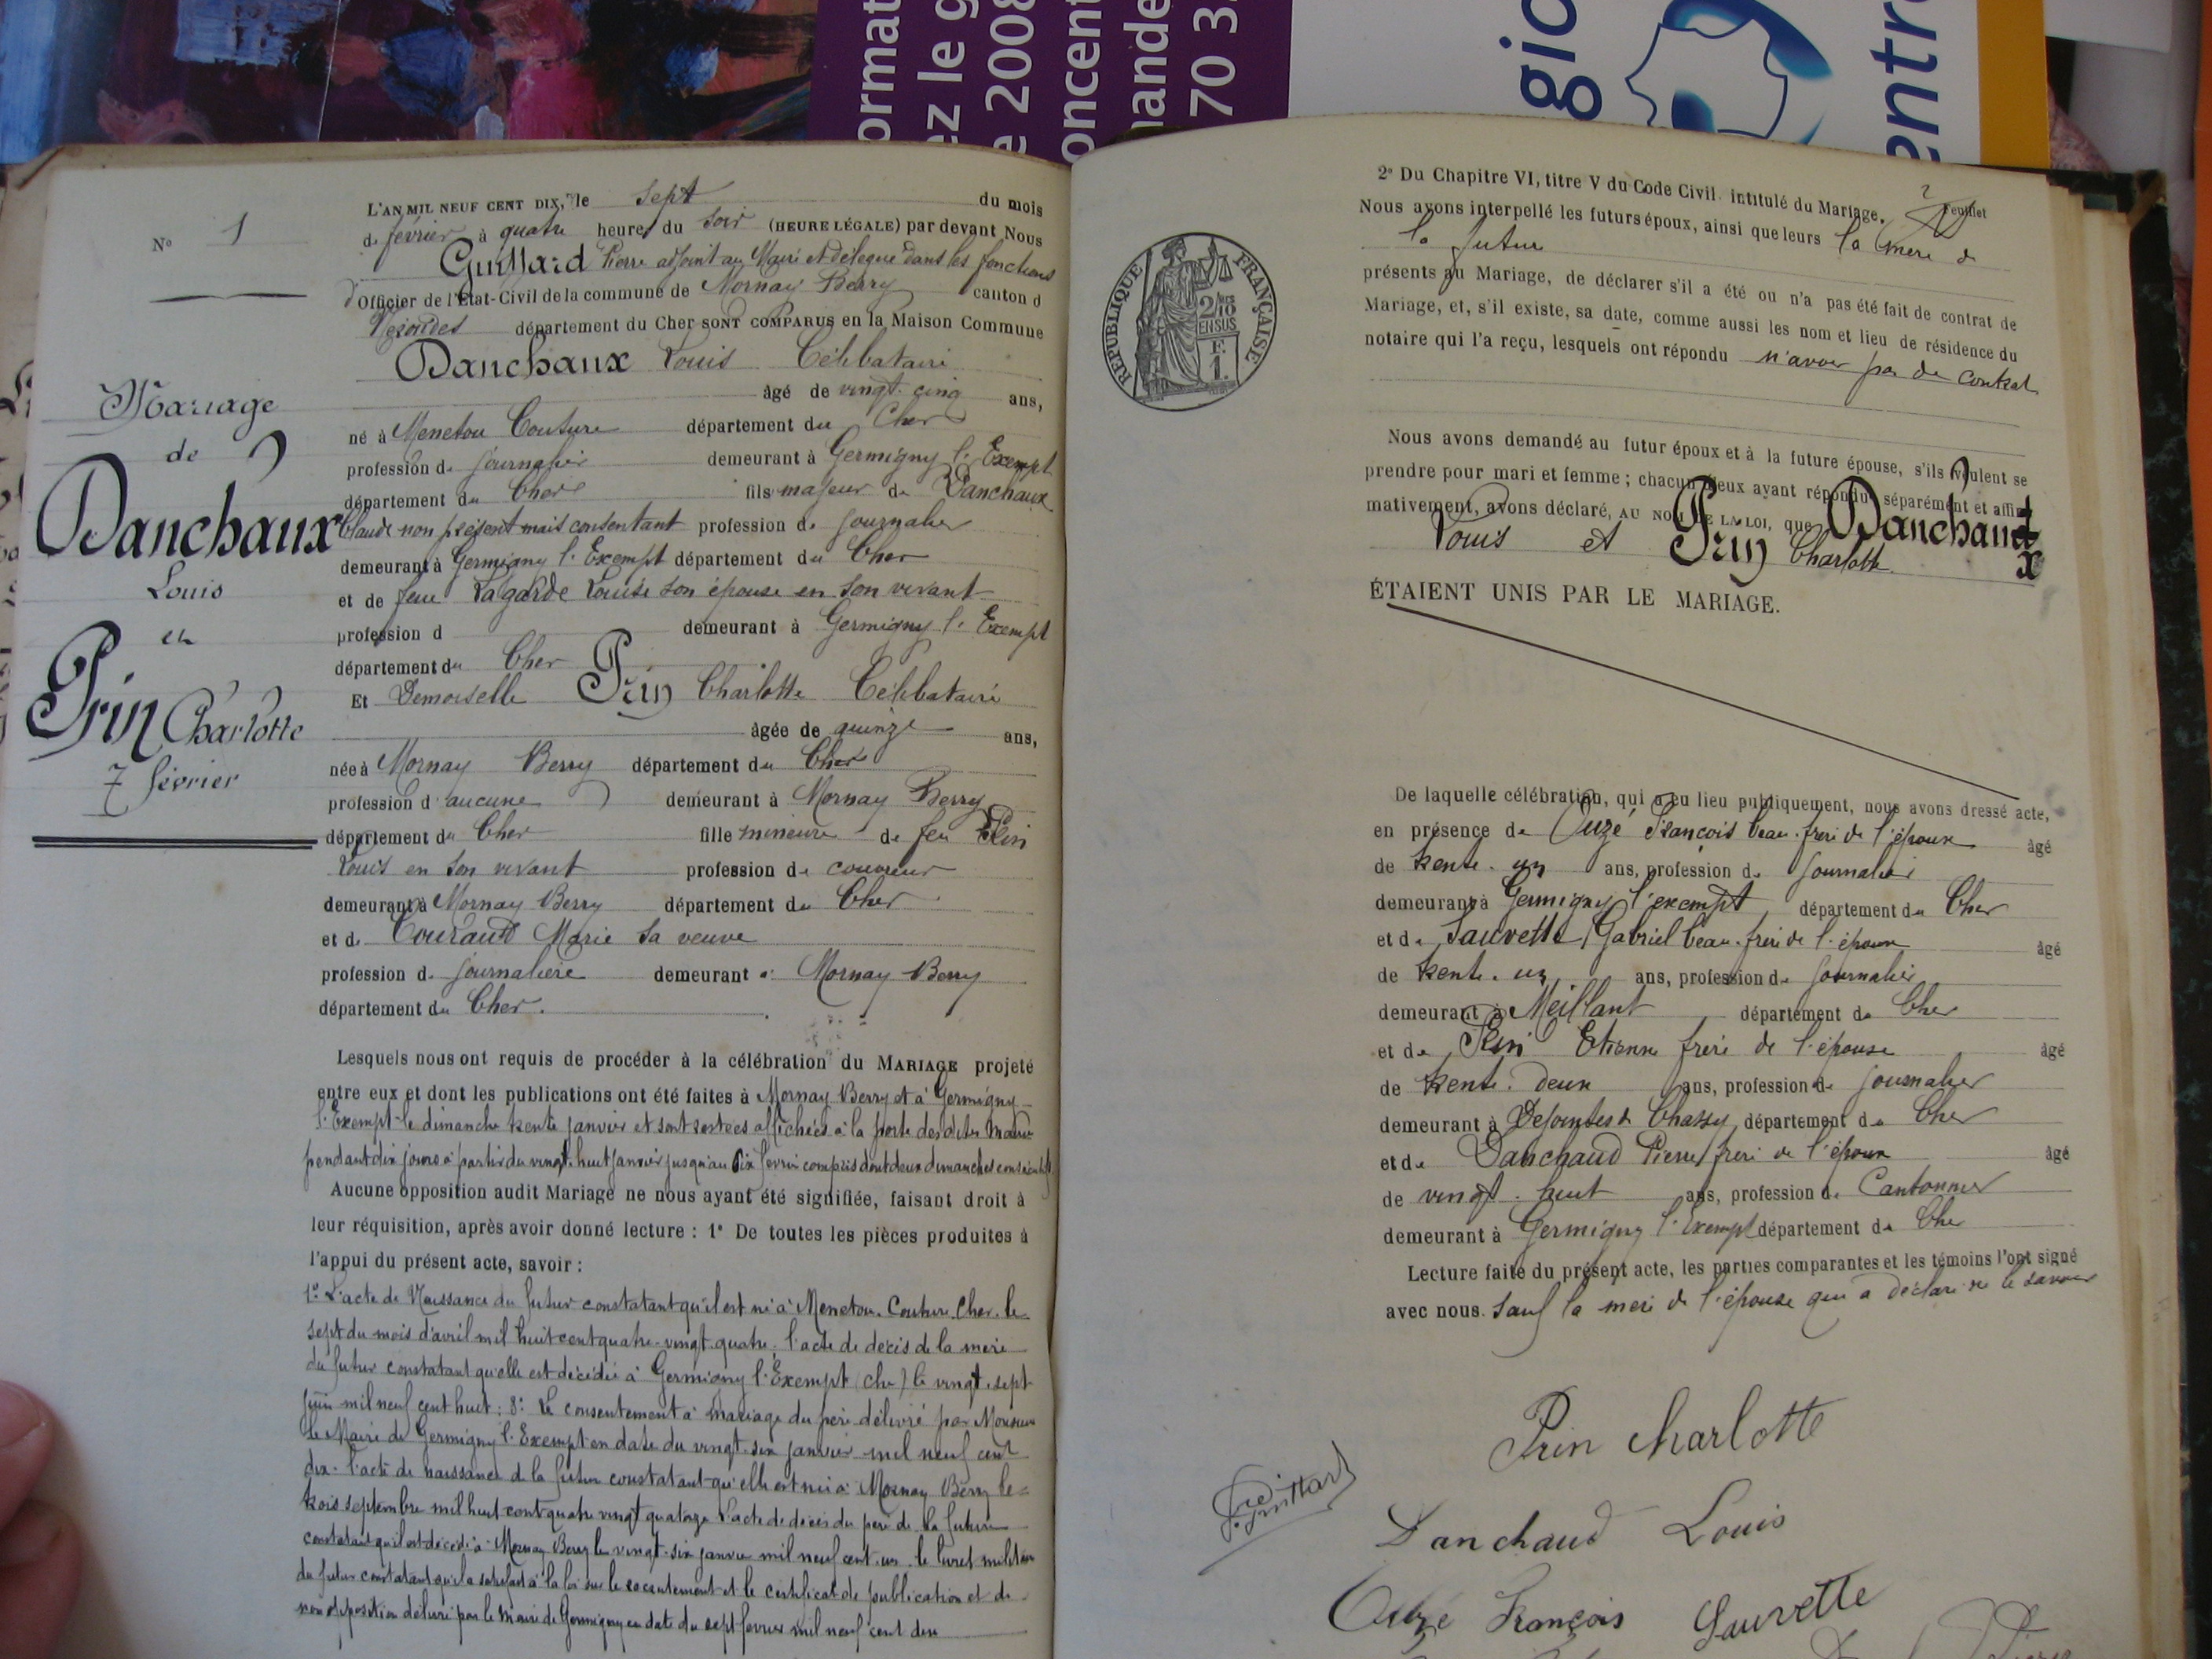 ormat
ez le g
e 2008
oncent
mande
70 3
gio
entr
No 1
Mariage
de
Danchaux
Louis
et
Prin Charlotte
7 février
L'AN MIL NEUF CENT DIX, le sept du mois
de février à quatre heures du soir (HEURE LÉGALE) par devant Nous
Guillard Pierre adjoint au Maire et délégué dans les fonctions
d'Officier de l'État-Civil de la commune de Mornay Berry canton d
département du Cher SONT COMPARUS en la Maison Commune
Danchaux Louis Célibataire
âgé de vingt-cinq ans,
né à Menetou Couture département du Cher
profession de journalier demeurant à Germigny l'Exempt
département du Cher fils majeur de Danchaux
Claude non présent mais consentant profession de journalier
demeurant à Germigny l'Exempt département du Cher
et de feue Lagarde Louise son épouse en son vivant
profession d demeurant à Germigny l'Exempt
département du Cher
Et Demoiselle Prin Charlotte Célibataire
âgée de quinze ans,
née à Mornay Berry département du Cher
profession d'aucune demeurant à Mornay Berry
département du Cher fille mineure de feu Prin
Louis en son vivant profession de couvreur
demeurant à Mornay Berry département du Cher
et de Couraud Marie sa veuve
profession de journalière demeurant à Mornay Berry
département du Cher.
Lesquels nous ont requis de procéder à la célébration du MARIAGE projeté
entre eux et dont les publications ont été faites à Mornay Berry et à Germigny
l'Exempt le dimanche trente janvier et sont restées affichées à la porte desdites Mairie
pendant dix jours à partir du vingt-huit janvier jusqu'au six février compris dont deux dimanches consécutifs
Aucune opposition audit Mariage ne nous ayant été signifiée, faisant droit à
leur réquisition, après avoir donné lecture : 1° De toutes les pièces produites à
l'appui du présent acte, savoir :
1° L'acte de Naissance du futur constatant qu'il est né à Menetou-Couture Cher le
sept du mois d'avril mil huit cent quatre-vingt-quatre. l'acte de décès de la mère
du futur constatant qu'elle est décédée à Germigny l'Exempt (cher) le vingt-sept
juin mil neuf cent huit : 3° Le consentement à mariage du père délivré par Monsieur
le Maire de Germigny l'Exempt en date du vingt-six janvier mil neuf cent
dix. l'acte de naissance de la future constatant qu'elle est née à Mornay Berry le
trois septembre mil huit cent quatre vingt quatorze l'acte de décès du père de la future
constatant qu'il est décédé à Mornay Berry le vingt-six janvier mil neuf cent-un. le livret militaire
du futur constatant qu'il a satisfait à la loi sur le recrutement et le certificat de publication et de
non opposition délivré par le Maire de Germigny en date du sept février mil neuf cent dix
RÉPUBLIQUE FRANÇAISE
2/10
EN SUS
F.
1.
2e Feuillet
2° Du Chapitre VI, titre V du Code Civil intitulé du Mariage.
Nous avons interpellé les futurs époux, ainsi que leurs la mère de
la future
présents au Mariage, de déclarer s'il a été ou n'a pas été fait de contrat de
Mariage, et, s'il existe, sa date, comme aussi les nom et lieu de résidence du
notaire qui l'a reçu, lesquels ont répondu n'avoir pas de contrat
Nous avons demandé au futur époux et à la future épouse, s'ils veulent se
prendre pour mari et femme ; chacun d'eux ayant répondu séparément et affir-
mativement, avons déclaré, AU NOM DE LA LOI, que Danchaux
Louis et Prin Charlotte
ÉTAIENT UNIS PAR LE MARIAGE.
De laquelle célébration, qui a eu lieu publiquement, nous avons dressé acte,
en présence de Ouzé François beau-frère de l'époux âgé
de trente-un ans, profession de journalier
demeurant à Germigny l'exempt département du Cher
et de Sauvette Gabriel beau-frère de l'époux âgé
de trente-un ans, profession de journalier
demeurant à Meillant département du Cher
et de Prin Etienne frère de l'épouse âgé
de trente-deux ans, profession de journalier
demeurant à Chassy département du Cher
et de Danchaud Pierre frère de l'époux âgé
de vingt-huit ans, profession de Cantonnier
demeurant à Germigny l'Exempt département du Cher
Lecture faite du présent acte, les parties comparantes et les témoins l'ont signé
avec nous. sauf la mère de l'épouse qui a déclaré ne le savoir
Prin Charlotte
Guillard
Danchaud Louis
Ouze François Sauvette